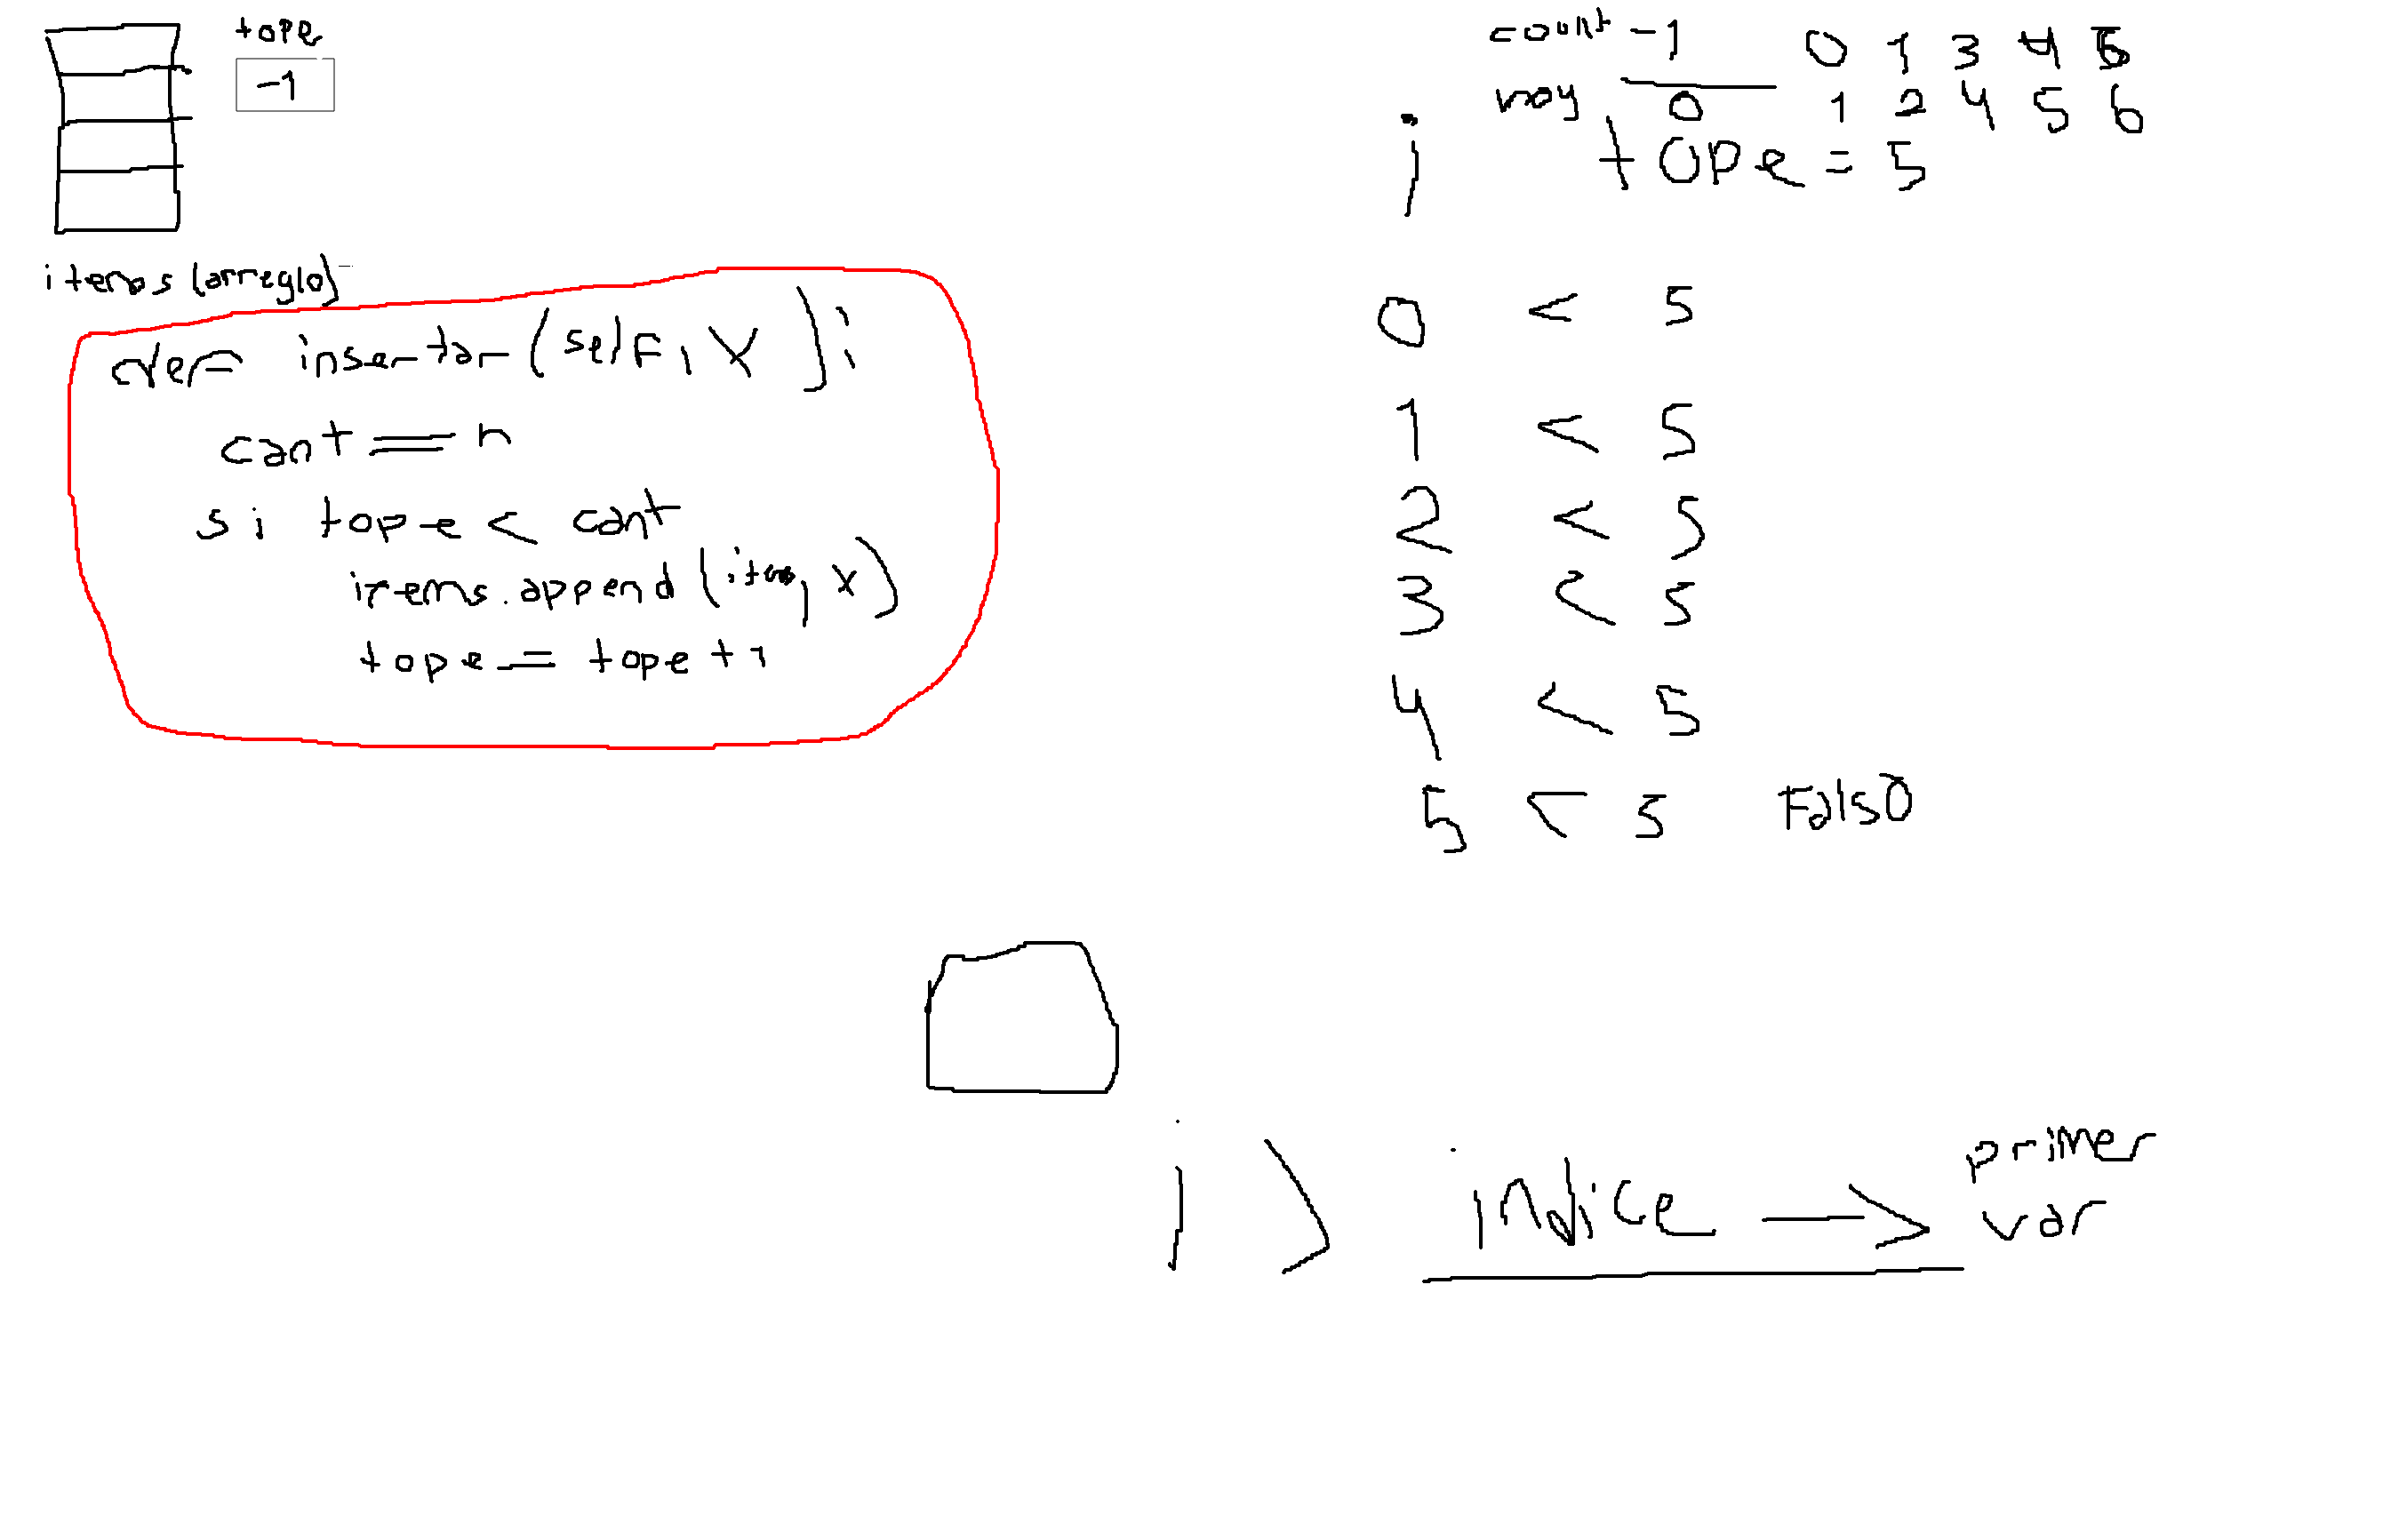 tope
-1
items (arreglo)
def insertar(self, x):
cant = n
si tope < cant
items.append(items, x)
tope = tope + 1
count -1 0 1 3 4 5
0 1 2 4 5 6
i tope = 5
0 < 5
1 < 5
2 < 5
3 < 5
4 < 5
5 < 5 Falso
i > indice → primer
var